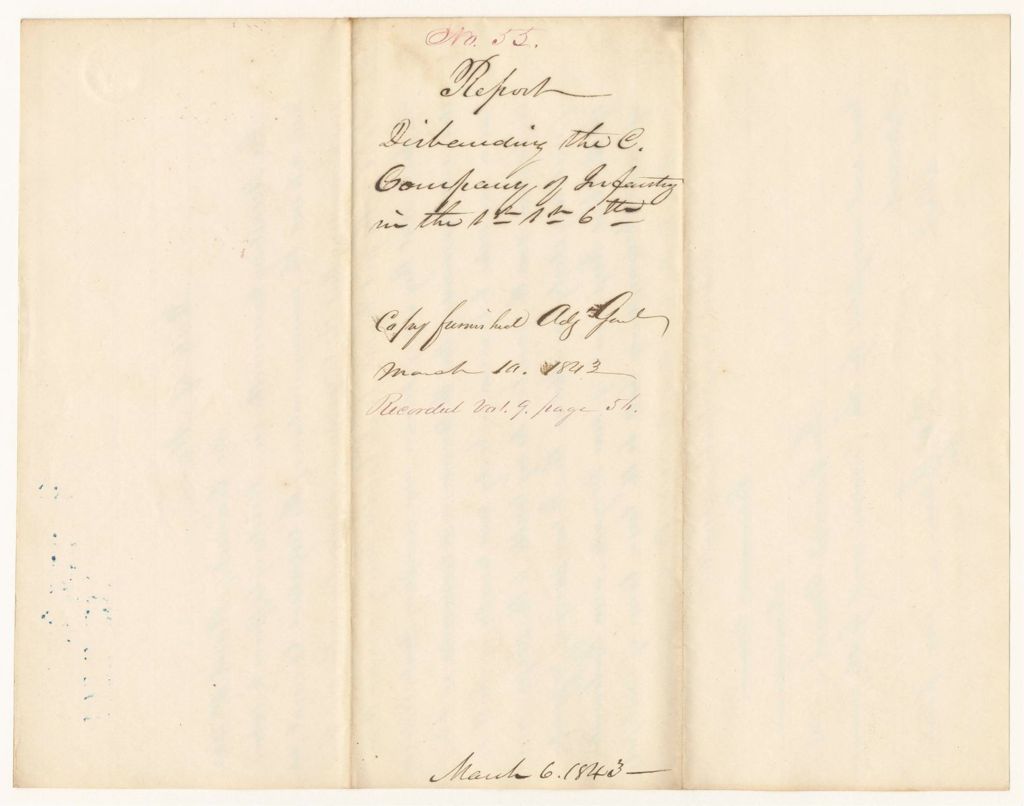 No. 55.
Report
Disbanding the C.
Company of Infantry
in the 1st 1st 6th
Copy furnished Adjt Genl
March 10. 1843
Recorded Vol. 9. page 56.
March 6. 1843